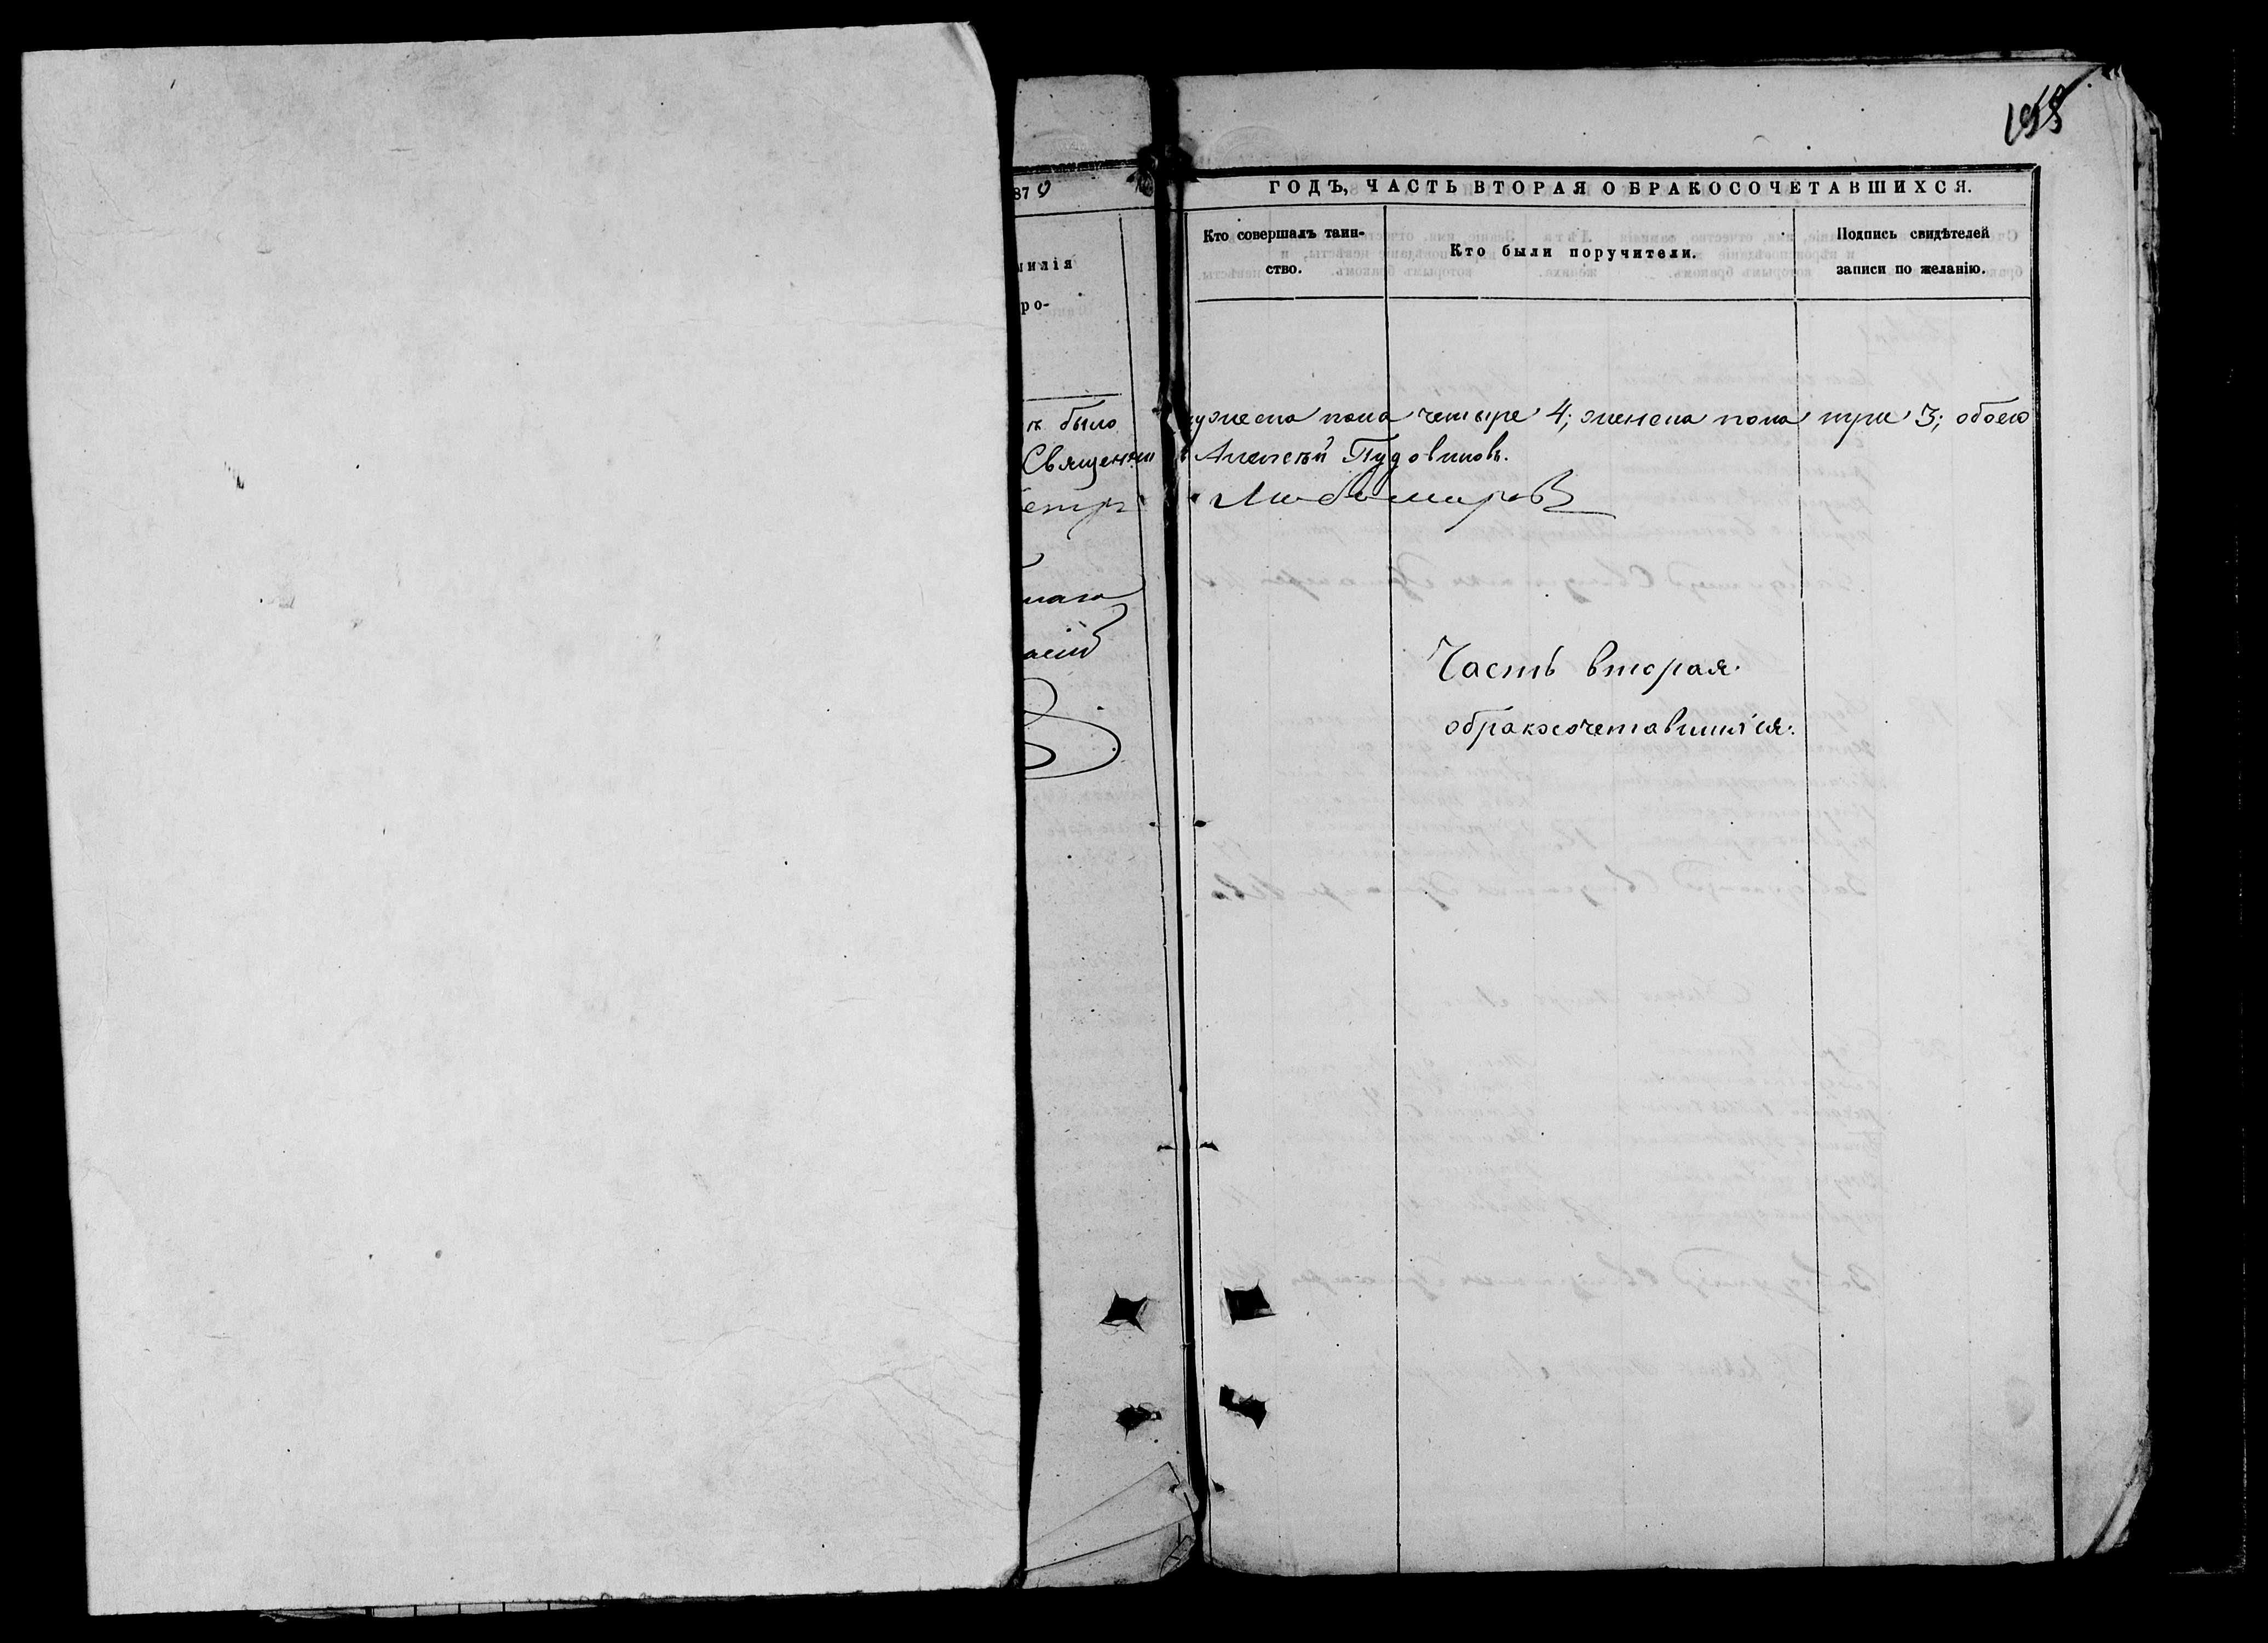 158
870
ГОДЪ, ЧАСТЬ ВТОРАЯ О БРАКОСОЧЕТАВШИХСЯ.
милія
ро-
Кто совершалъ таин-
ство.
Кто были поручители.
Подпись свидѣтелей
записи по желанію.
было мужеска пола четыре 4; женска пола три 3; обоего
Священникъ Алексѣй Пудовиковъ.
Петръ Любомировъ
Часть вторая
обракосочетавшихся.